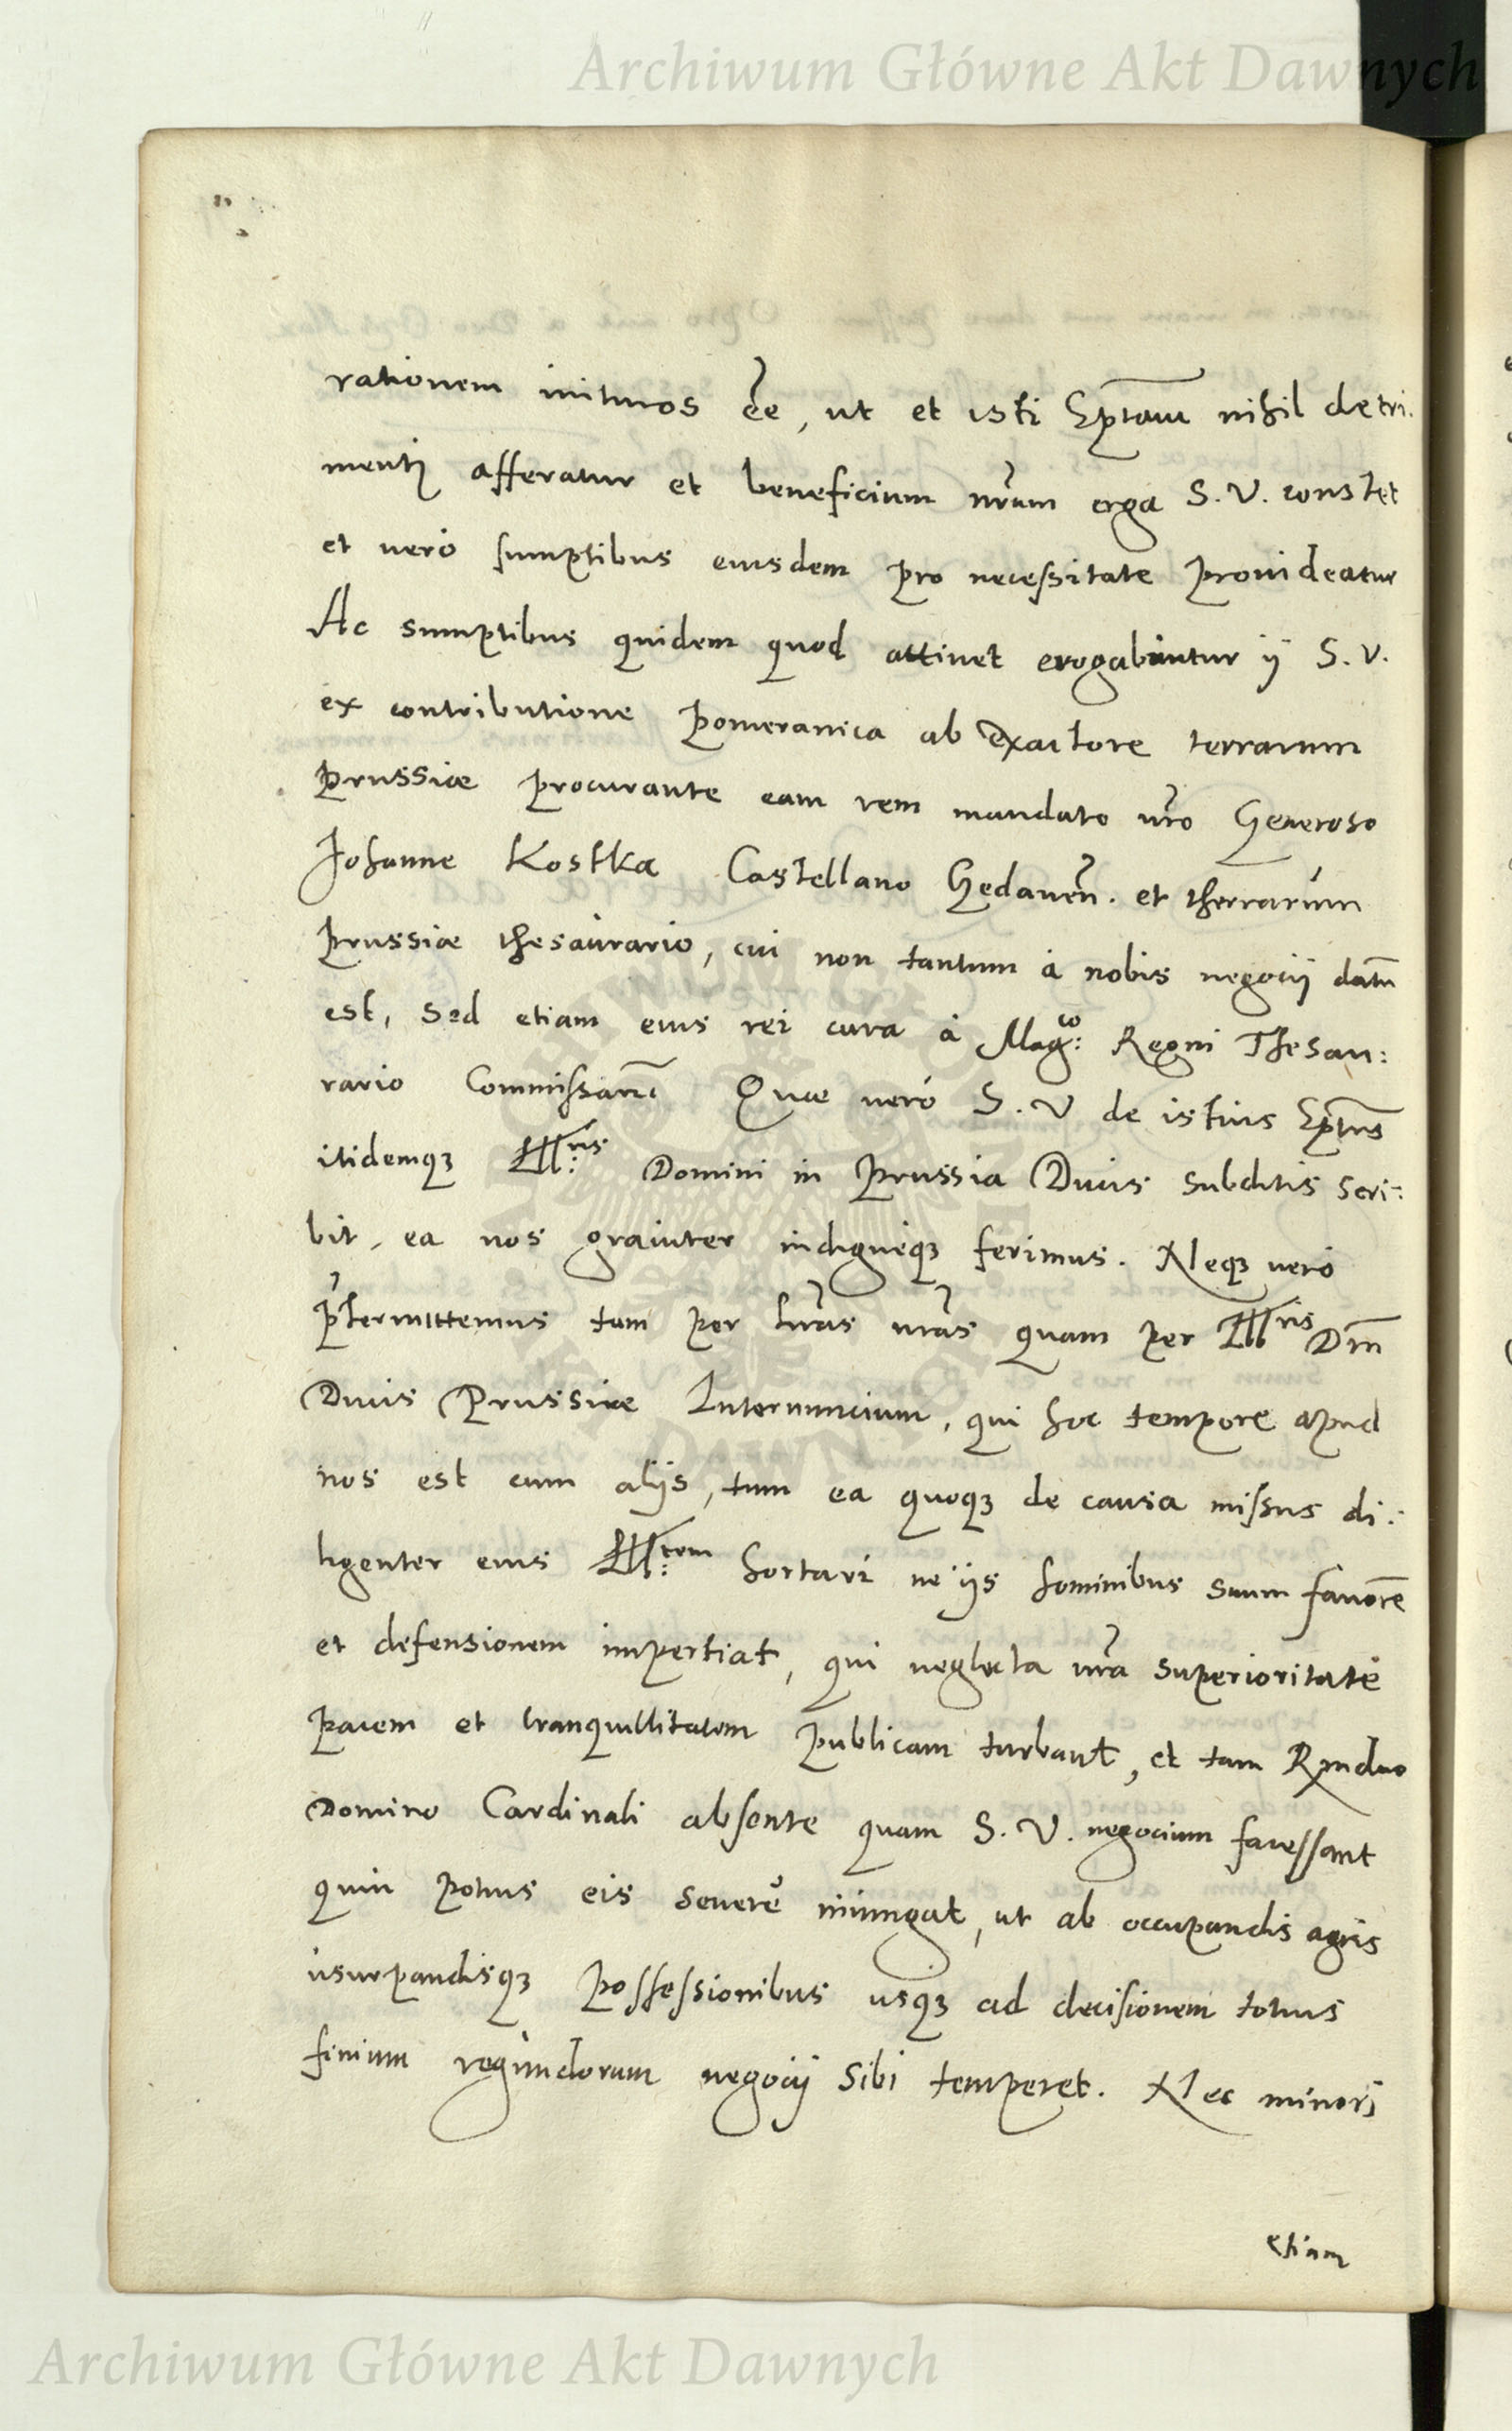 Archiwum Główne Akt Dawnych
rationem inituros ẽe, ut et isti Ep̃tavi nihil detri:
menti afferatur et beneficium nr̃um erga S. V. constet
et vero sumptibus eiusdem pro necessitate provideatur
Ac sumptibus quidem quod attinet erogabuntur ij S. V.
ex contributione Pomeranica ab exactore terrarum
Prussiae procurante eam rem mandato nr̃o Generoso
Johanne Kostka Castellano Gedanen̄. et therrarum
Prussiae thesaurario, cui non tantum à nobis negocij datū
est, sed etiam eius rei cura à Mag:co Regni Thesau:
rario Commissa Quae vero S. V de istius Ep̃tus
itidemqꝫ Ill:ris Domini in Prussia Ducis subditis scri:
bit, ea nos graviter indigneqꝫ ferimus. Neqꝫ vero
p̃termittemus tam per lr̃as nr̃as quam per Ill:ris Dn̄i
Ducis Prussiae Internuncium, qui hoc tempore apud
nos est cum alijs, tum ea quoqꝫ de causa missus di:
ligenter eius Ill:tem hortari ne ijs hominibus suum favorē
et defensionem impertiat, qui neglecta nr̃a superioritate
pacem et tranquillitatem publicam turbant, et tam Rm̄dno
Domino Cardinali absente quam S. V. negocium facessant
quin potius eis severè iniungat, ut ab occupandis agris
usurpandisqꝫ possessionibus usqꝫ ad decisionem totius
finium regundorum negocij sibi temperet. Nec minori
etiam
Archiwum Główne Akt Dawnych